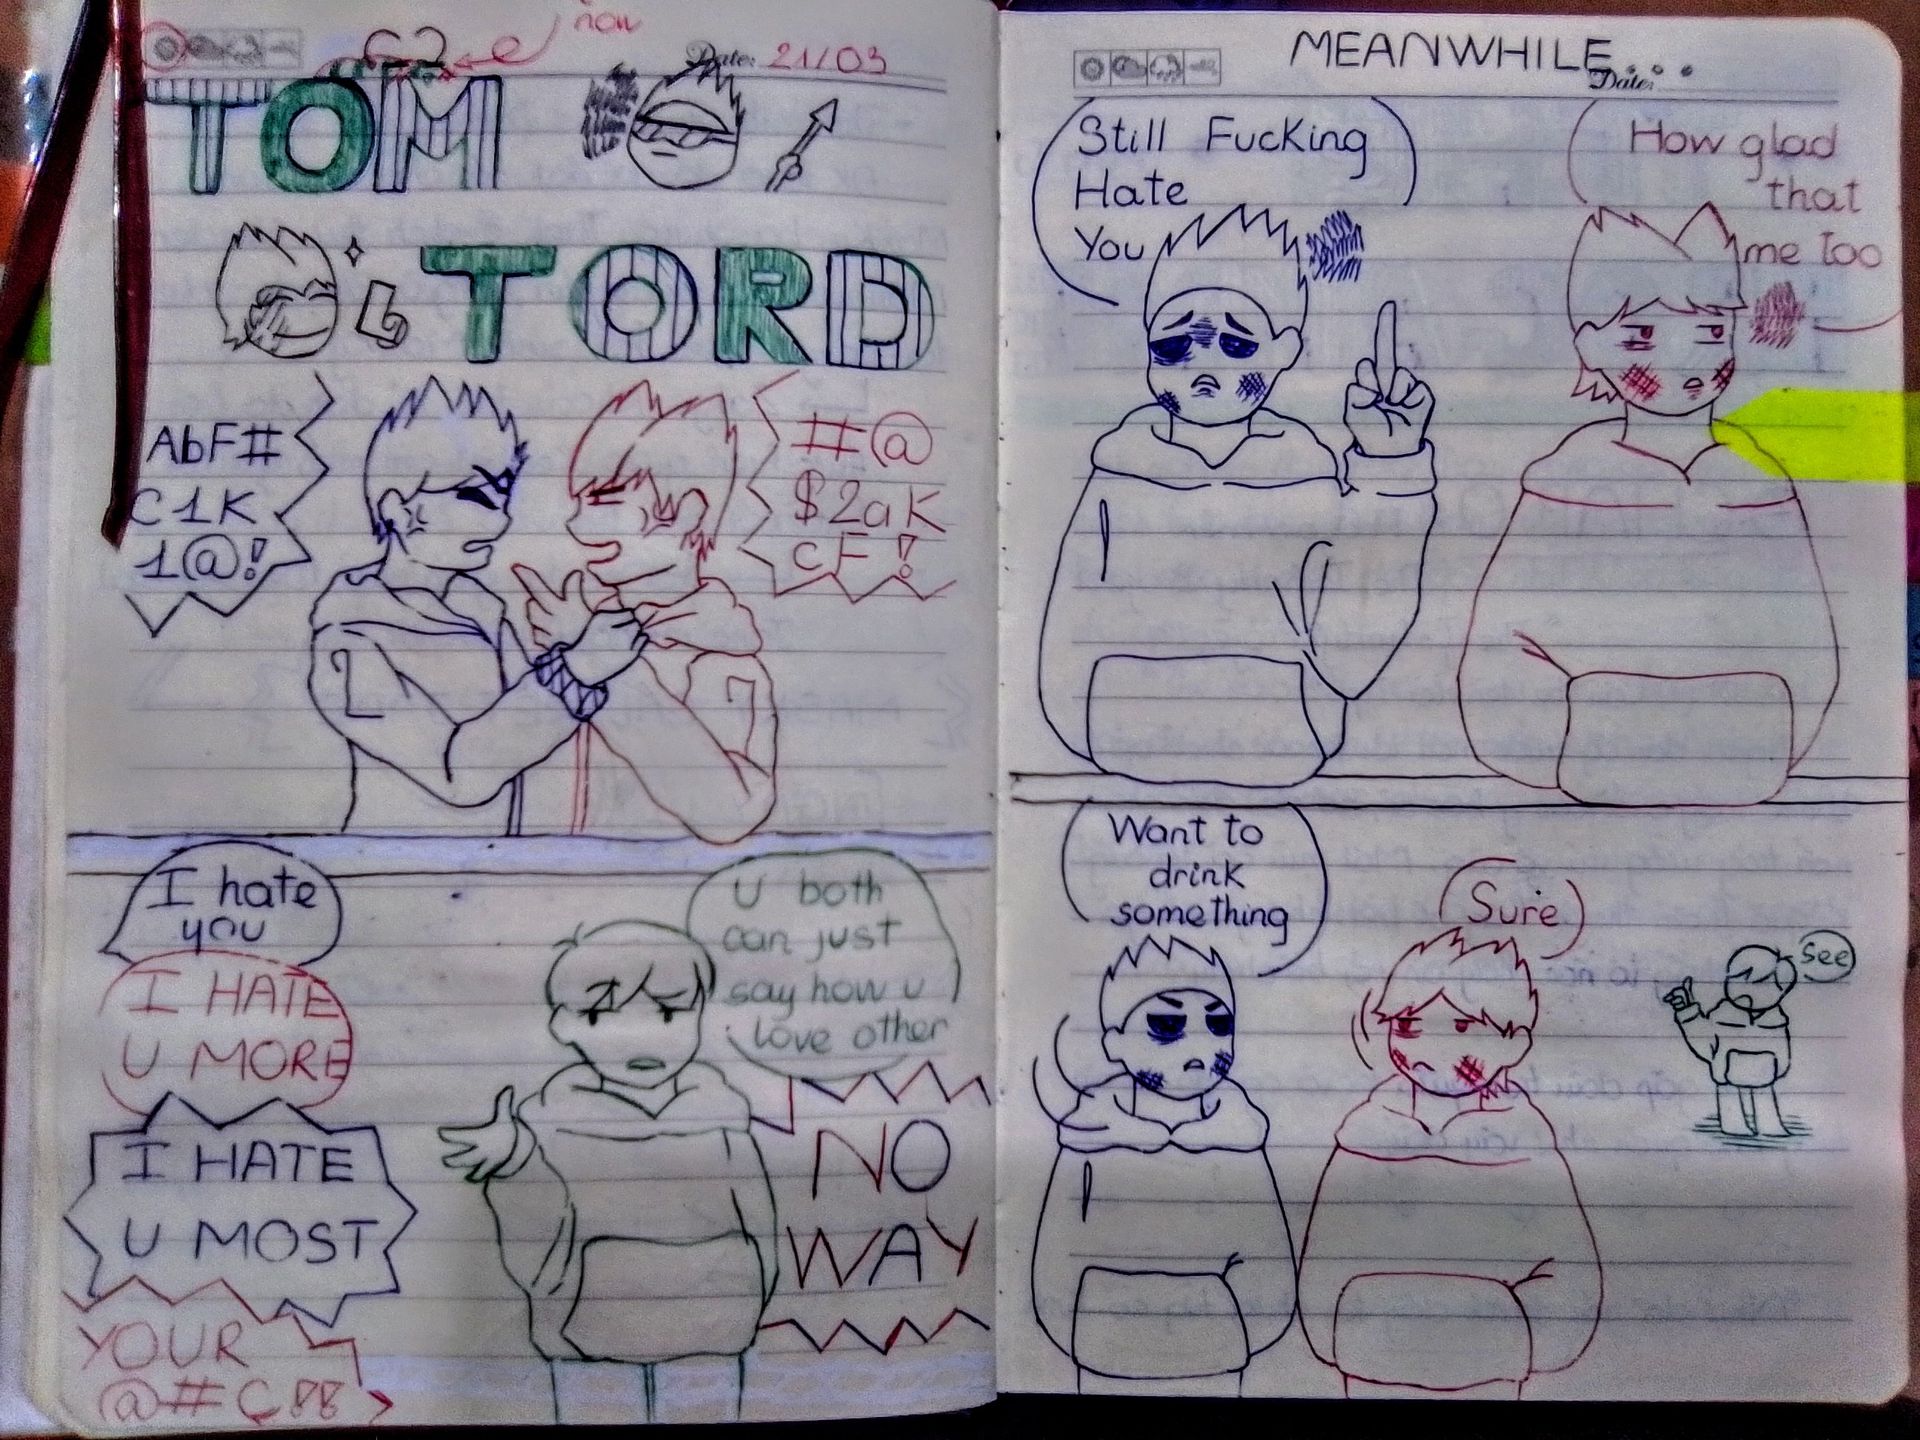 now
Date: 21/03
TOM
TORD
AbF#
C1K
1@!
#@
$2aK
CF!
I hate
you
I HATE
U MORE
I HATE
U MOST
YOUR
U both
can just
say how u
love other
NO
WAY
MEANWHILE...
Date:
Still Fucking
Hate
You
How glad
that
me too
Want to
drink
something
Sure
See